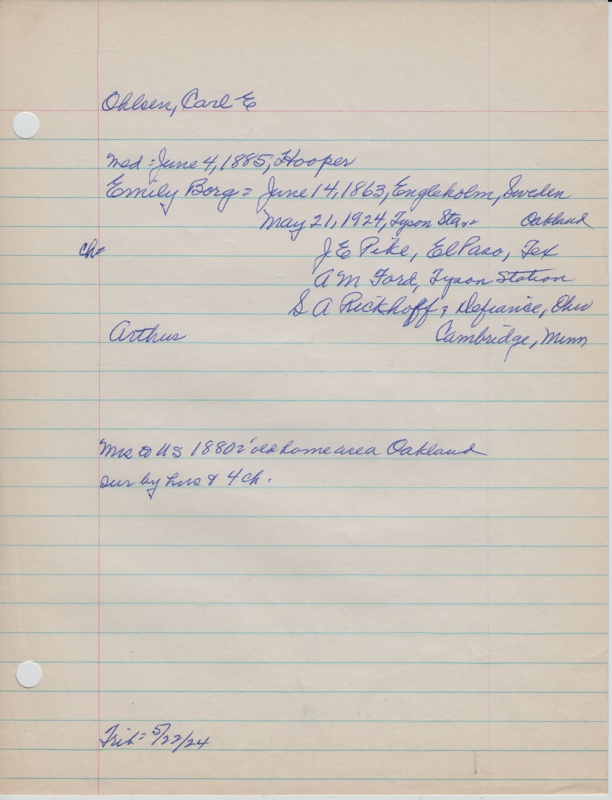 Ohlsen, Carl E
md = June 4, 1885, Hooper
Emily Borg = June 14, 1863, Engleholm, Sweden
May 21, 1924, Tyson Sta, Oakland
ch=
J E Pike, El Paso, Tex
A M Ford, Tyson Station
S A Rickhoff, Defiance, Ohio
Arthur Cambridge, Minn
Mrs to US 1880 home area Oakland
sur by hus & 4 ch.
Trib = 5/22/24